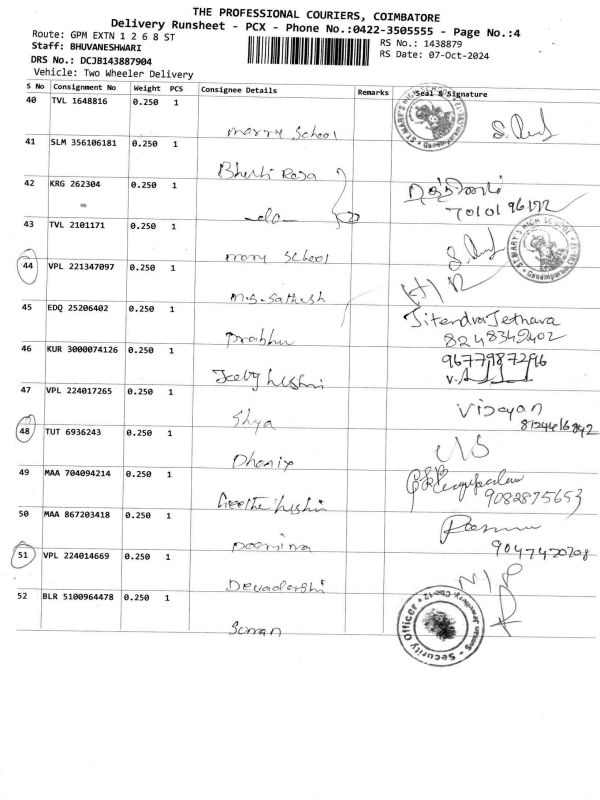 THE PROFESSIONAL COURIERS, COIMBATORE
Delivery Runsheet - PCX - Phone No.:0422-3505555 - Page No.:4
Route: GPM EXTN 1 2 6 8 ST
RS No.: 1438879
Staff: BHUVANESHWARI
RS Date: 07-Oct-2024
DRS No.: DCJB143887904
Vehicle: Two Wheeler Delivery
S No Consignment No Weight PCS Consignee Details Remarks Seal & Signature
40 TVL 1648816 0.250 1
marry School
41 SLM 356106181 0.250 1
Bharti Raja
42 KRG 262304 0.250 1
-do-
7010196172
43 TVL 2101171 0.250 1
mary School
44 VPL 221347097 0.250 1
M.S. Sathish
45 EDQ 25206402 0.250 1
Prabhu
Jitendra Jethava
8248349402
46 KUR 3000074126 0.250 1
9677987296
47 VPL 224017265 0.250 1
Shya
Vijayan
48 TUT 6936243 0.250 1
Dhanix
49 MAA 704094214 0.250 1
9082875653
50 MAA 867203418 0.250 1
poornima
9047420208
51 VPL 224014669 0.250 1
Devadarshi
52 BLR 5100964478 0.250 1
Suman
Security Officer